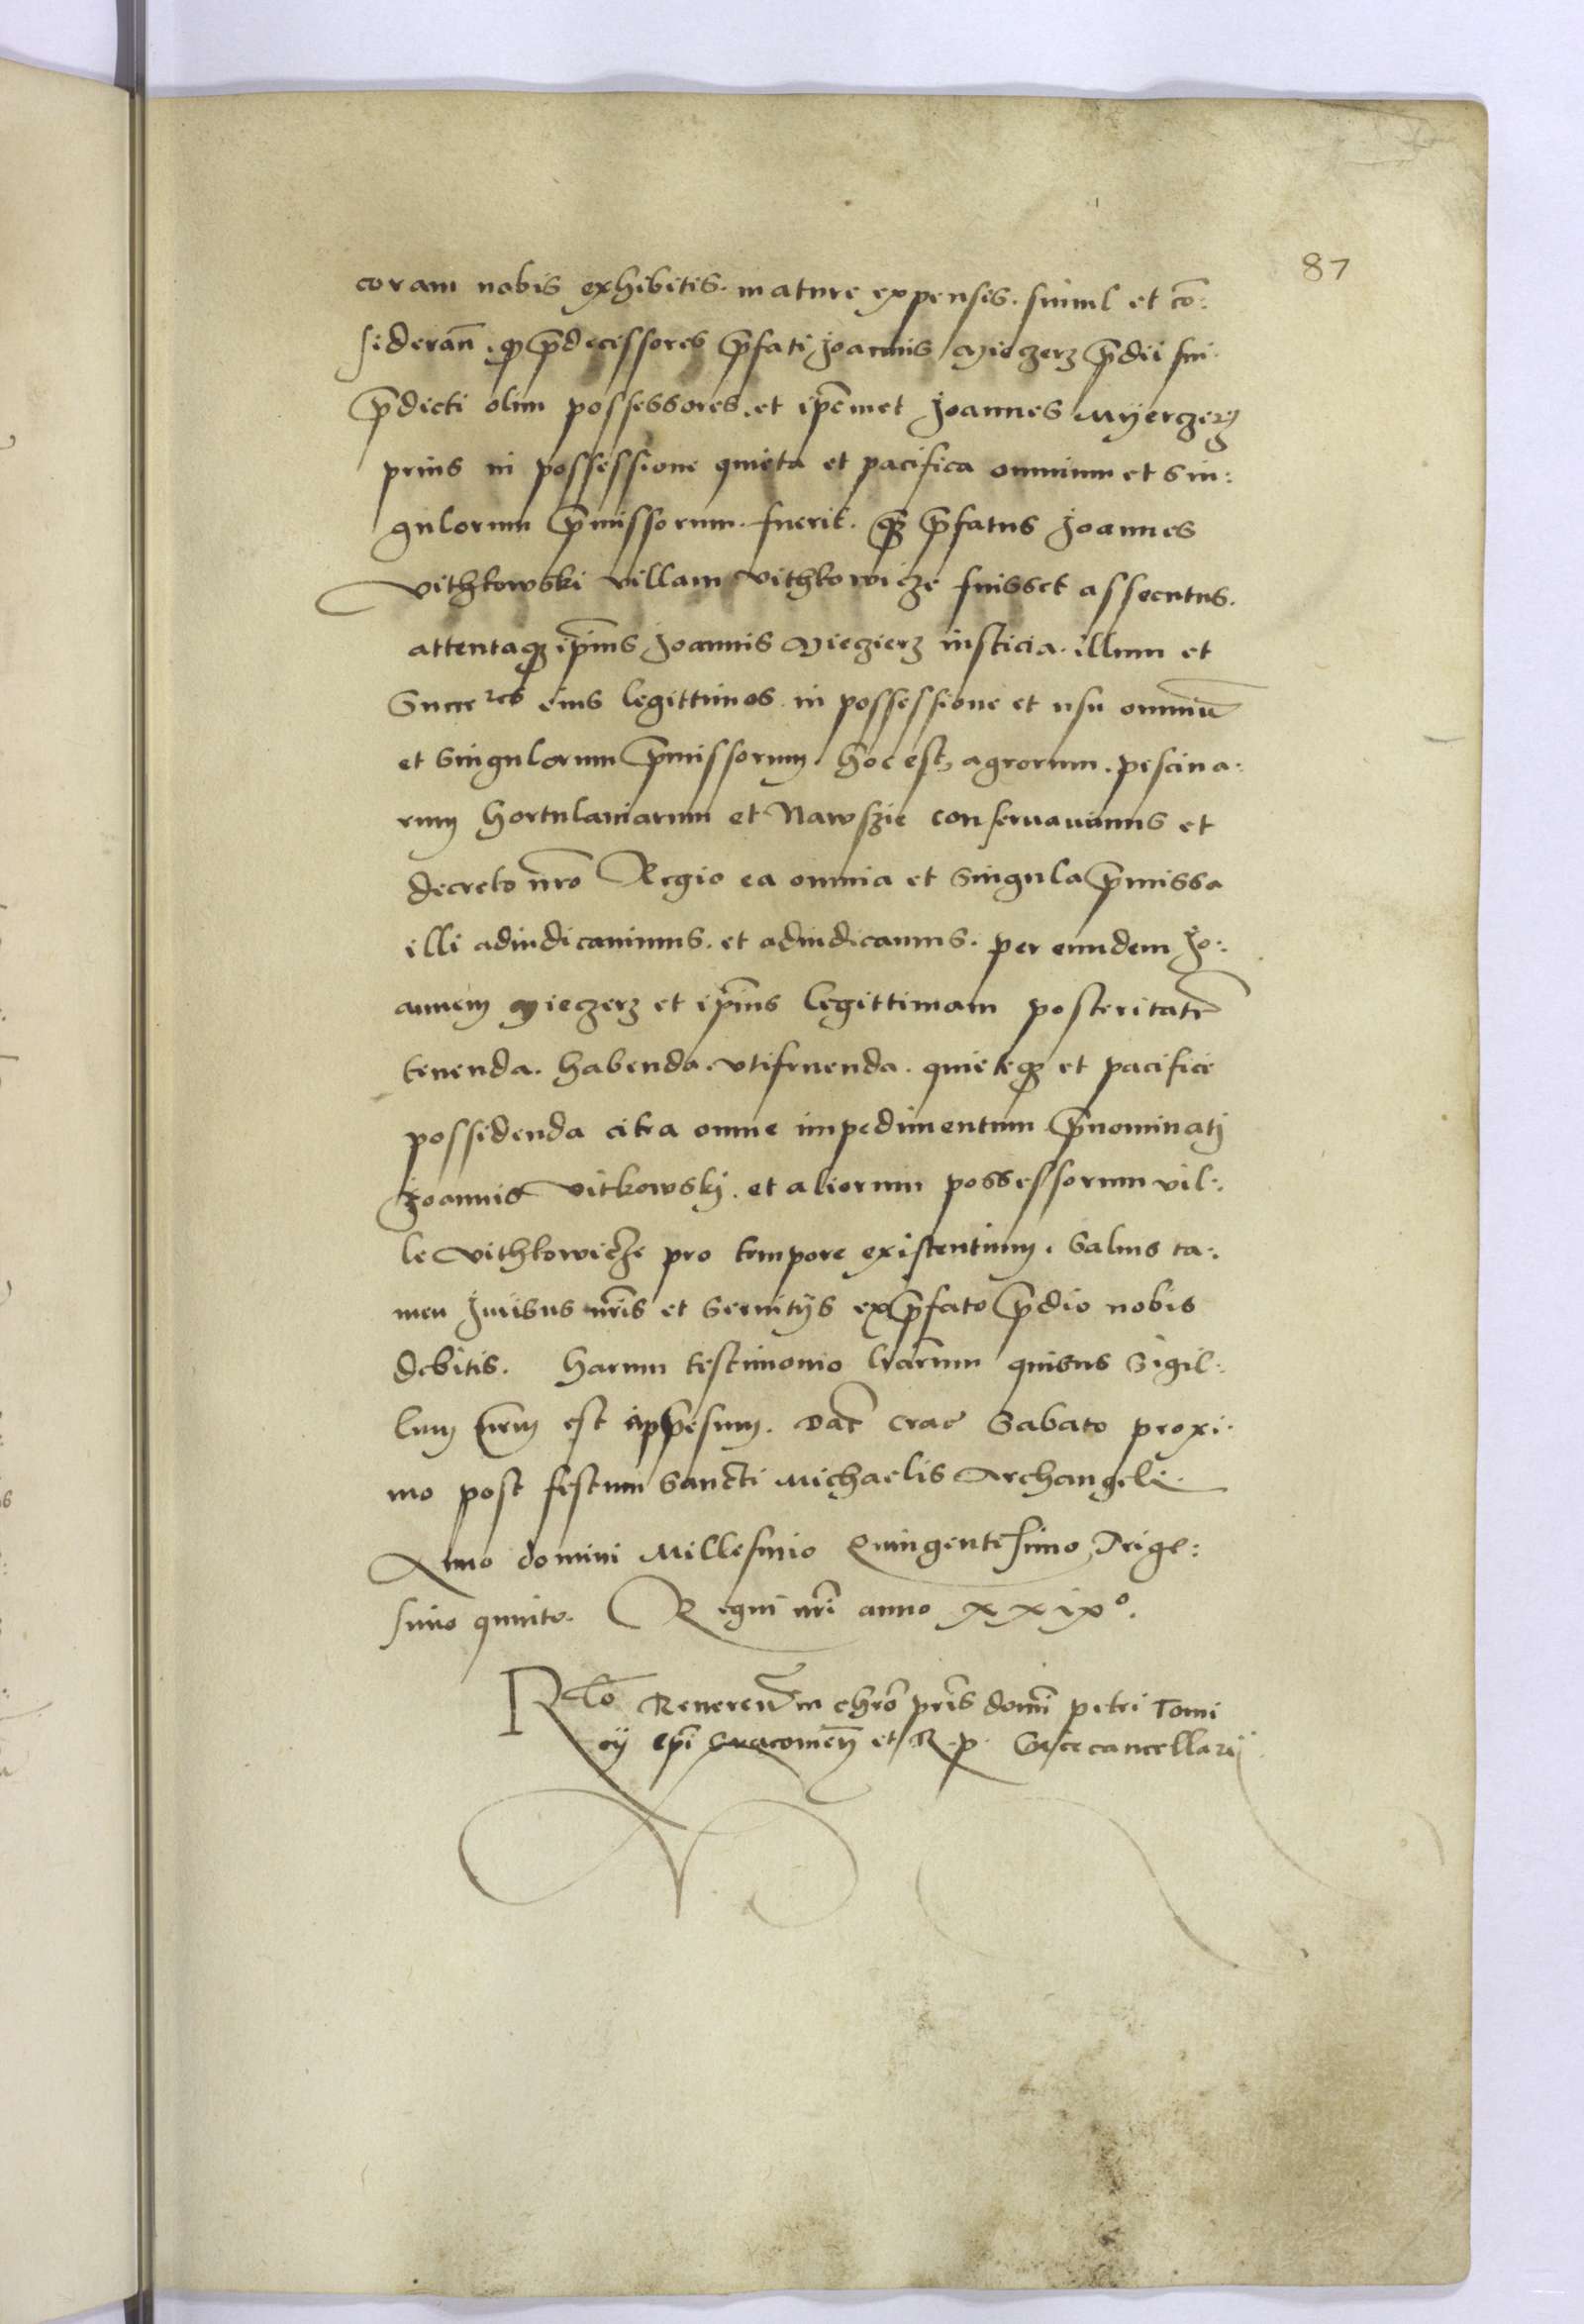 87
coram nobis exhibitis. mature expensis. simul et cō:
siderañ. q̃ p̄decessores p̄fati Joannis Mieczerz p̄dii sui
p̄dicti olim possessores. et ip̄emet Joannes Myerczerz
prius in possessione quieta et pacifica omnium et sin:
gulorum p̄missorum. fuerit. q̃ p̄fatus Joannes
Vithkowski villam Vithkowicze fuisset assecutus.
attentaq ip̄ius Joannis Mieczierz iusticia. illum et
Succeres eius legittimos in possessione et usu omniū
et singulorum p̄missorum. hoc est, agrorum. piscina:
rum hortulaniarum et Nawszie conservavimus et
decreto nr̄o Regio ea omnia et singula p̄missa
illi adiudicavimus. et adiudicamus. per eundem Jo:
annem Mieczerz et ip̄ius legittimam posteritatē
tenenda. habenda. utifruenda. quieteq et pacifice
possidenda citra omne impedimentum p̄nominatj
Joannis Vitkowskj. et aliorum possessorum vil:
le Vithkowicze pro tempore existentium. Salvis ta:
men Juribus nr̄is et servitijs ex p̄fato p̄dio nobis
debitis. Harum testimonio lr̄arum quibus Sigil:
lum nr̄m est appēsum. Dat̄ Crac̄ Sabato proxi:
mo post festum Sancti Michaelis Archangeli
Anno domini Millesimo Quingentesimo Trige:
simo quinto. Regni nr̄i anno xxixº.
Rlō Reverendi in chr̄o pr̄is domī petri Tomi
cij ep̄i Cracovień et R. p. Vicecancellarij